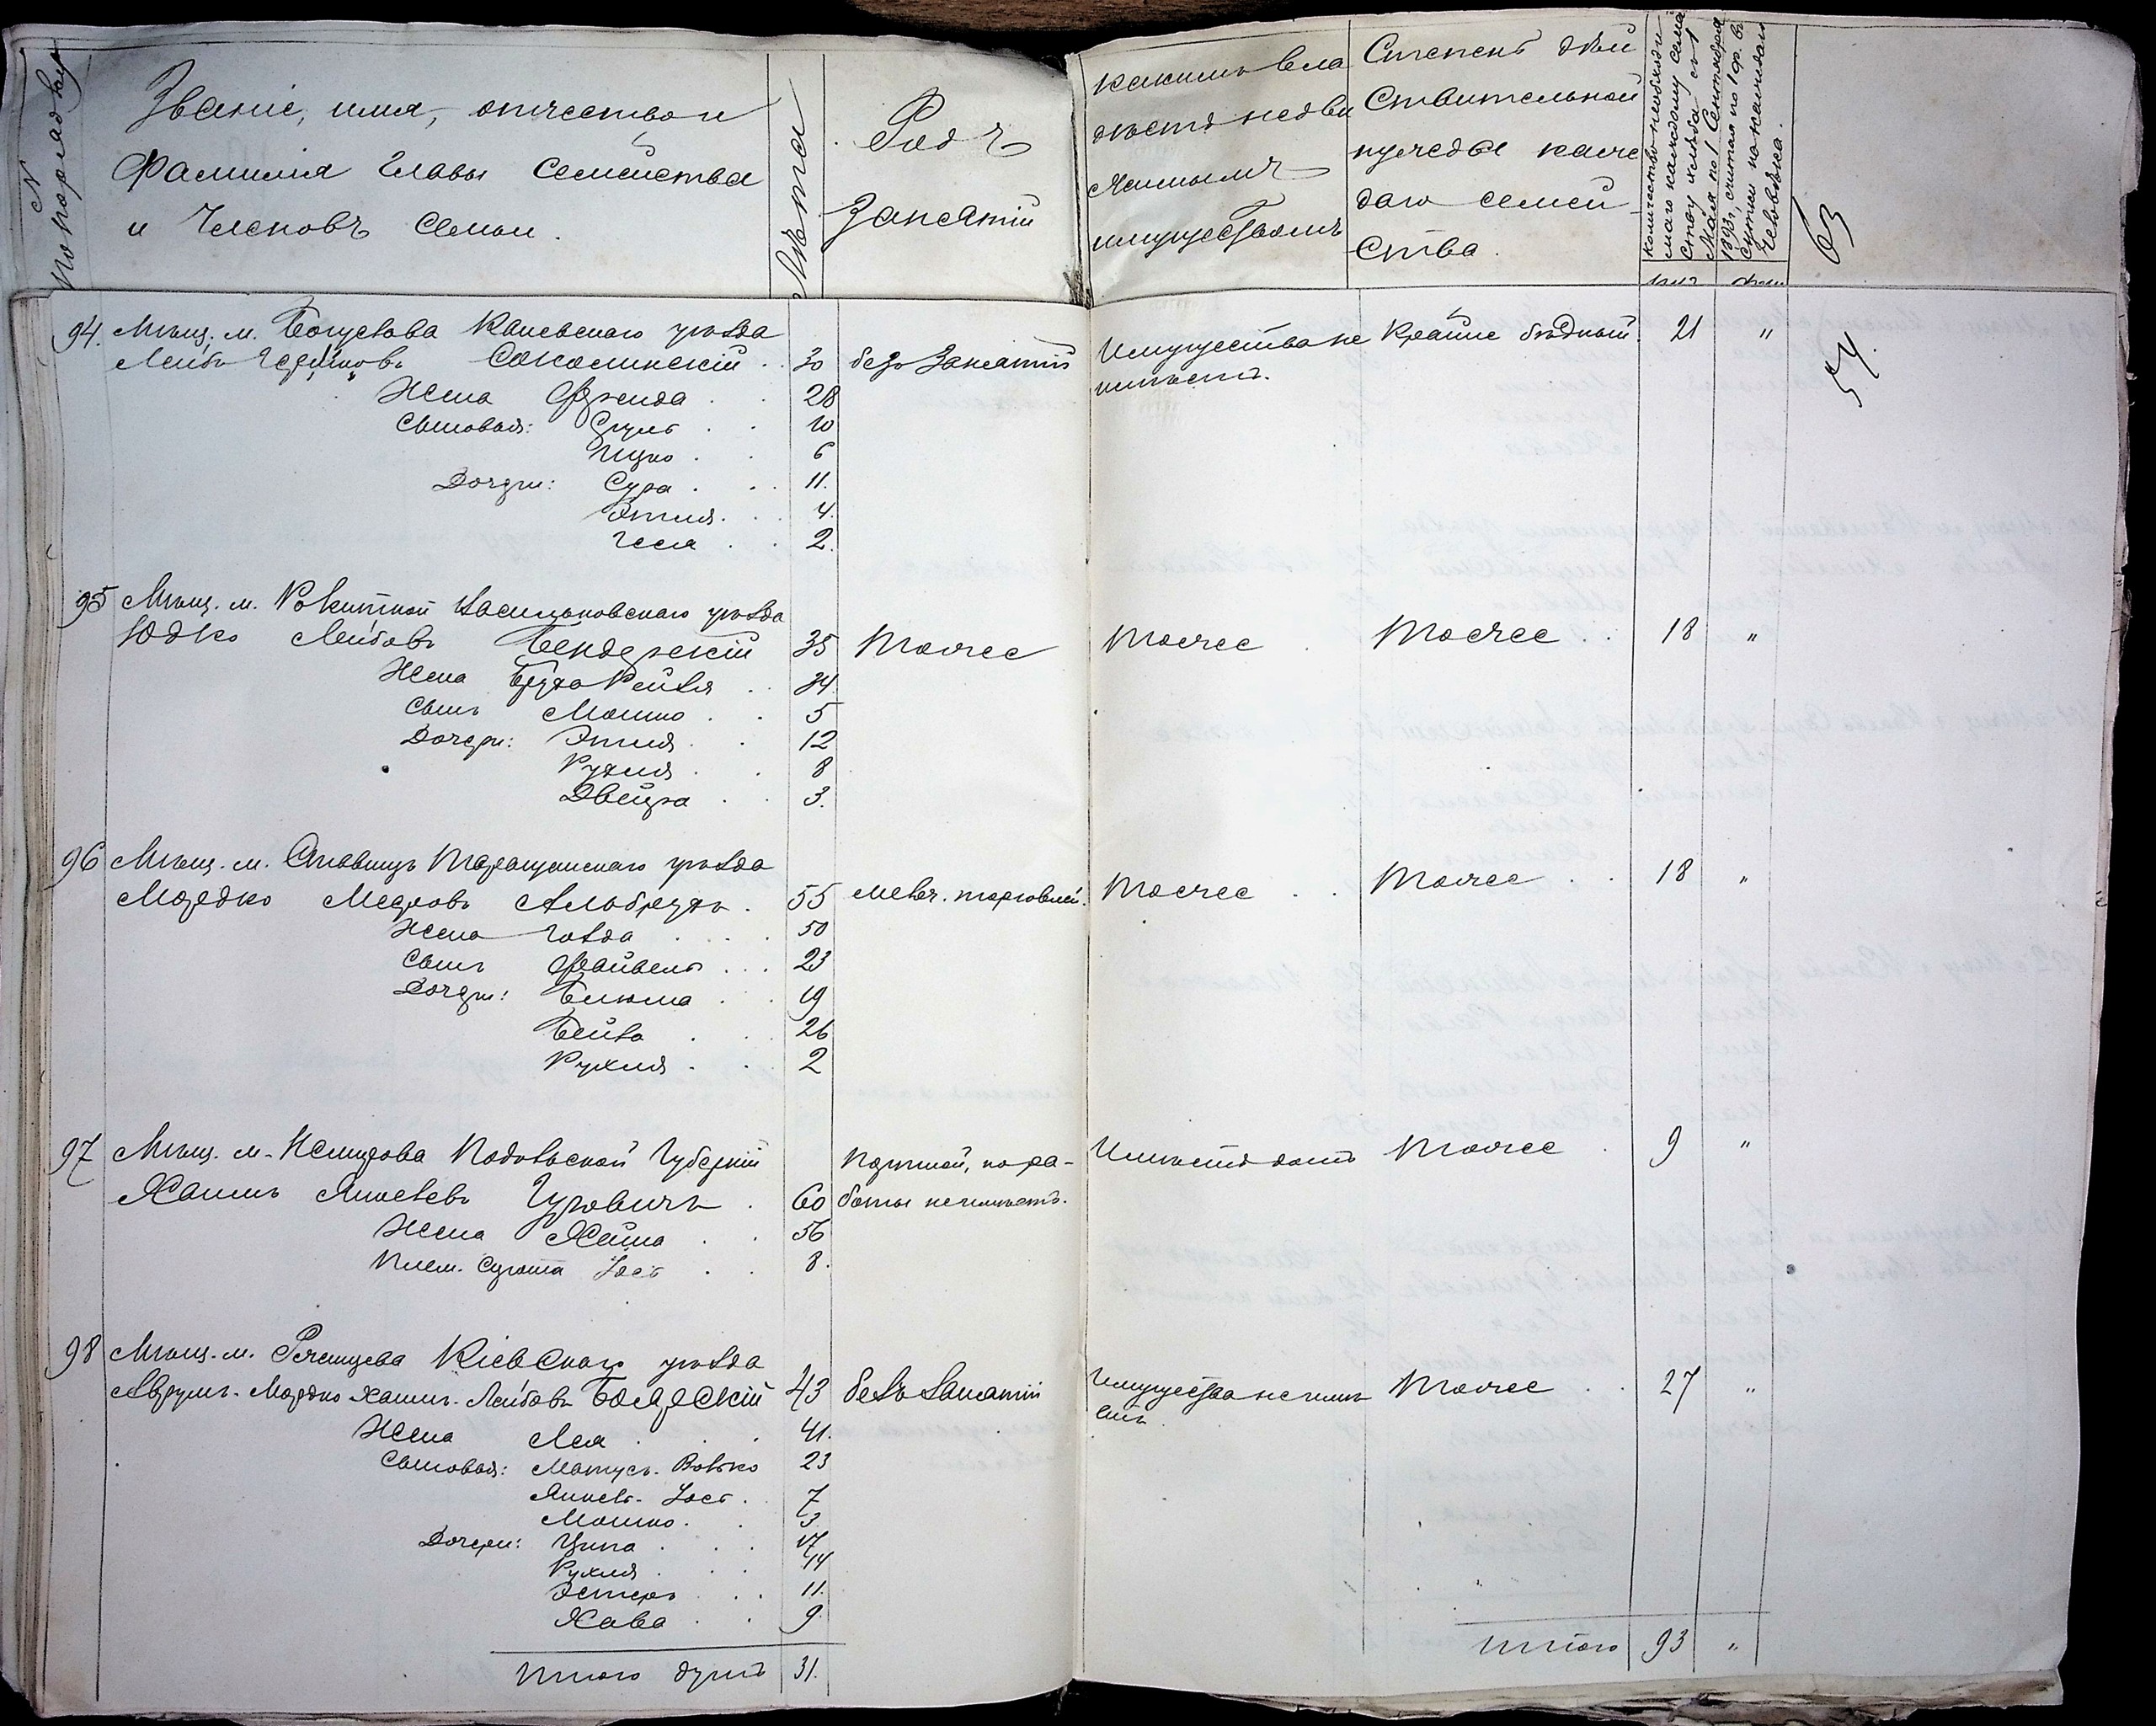 № по порядку
Званіе, имя, отчество и
фамилія главы семейства
и членовъ семьи.
Лѣта
Родъ
занятій
какимъ вла
дѣетъ недви
жимымъ
имуществомъ
Степень дѣй
ствительной
нужды каж
даго семей
ства.
Количество необходи
маго каждому семей
ству хлѣба съ 1
Мая по 1 Сентября
1892 г., считая по 1 ф. въ
сутки на каждаго
человѣка.
пуд. фун.
63
54.
94. Мѣщ. м. Богуслава Каневскаго уѣзда
Лейба Сокалинскій . 30 безъ занятій Имущества не Крайне бѣдный. 21 "
имѣетъ.
Жена Фрейда . . 28
Сыновья: Сруль . . 10
Ицко . . 6
Дочери: Сура . . . 11.
Этля . . 4.
Геся . . 2.
95 Мѣщ. м. Рокитной Васильковскаго уѣзда
Юдко Лейбовъ Бендерскій 35 Тоже Тоже . Тоже . . 18 "
Жена Бруха Рейзя . . 34.
Сынъ Мошко . . 5
Дочери: Этля . . 12
Рухля . . 8
Двейра . . 3.
96 Мѣщ. м. Ставищъ Таращанскаго уѣзда
Мордко Мееровъ Альбрухъ . 55 мелоч. торговлей. Тоже . . Тоже . . 18 "
Жена Голда . . . 50
Сынъ Файвель . . . 23
Дочери: Блюма . . 19
Бейла . . 26
Рухля . . 2
97 Мѣщ. м. Немирова Подольской Губерніи Портной, но ра- Имѣетъ домъ Тоже . 9 "
Хаимъ Янкелевъ Гуровичъ . 60 боты не имѣетъ.
Жена Хайка . . 56
Плем. сирота Іось . . 8.
98 Мѣщ. м. Ржищева Кіевскаго уѣзда
Аврумъ-Мордко Хаимъ-Лейбовъ Боярскій 43 безъ занятій Имущества не имѣ Тоже . . 27 "
етъ
Жена Лея . . . 41.
Сыновья: Матусъ-Волько 23
Янкель-Іось . 7
Мошко . . 3
Дочери: Ципа . . . 17
Рухля . . . 14
Эстеръ . . . 11.
Хава . . 9
Итого душъ 31. Итого 93 "